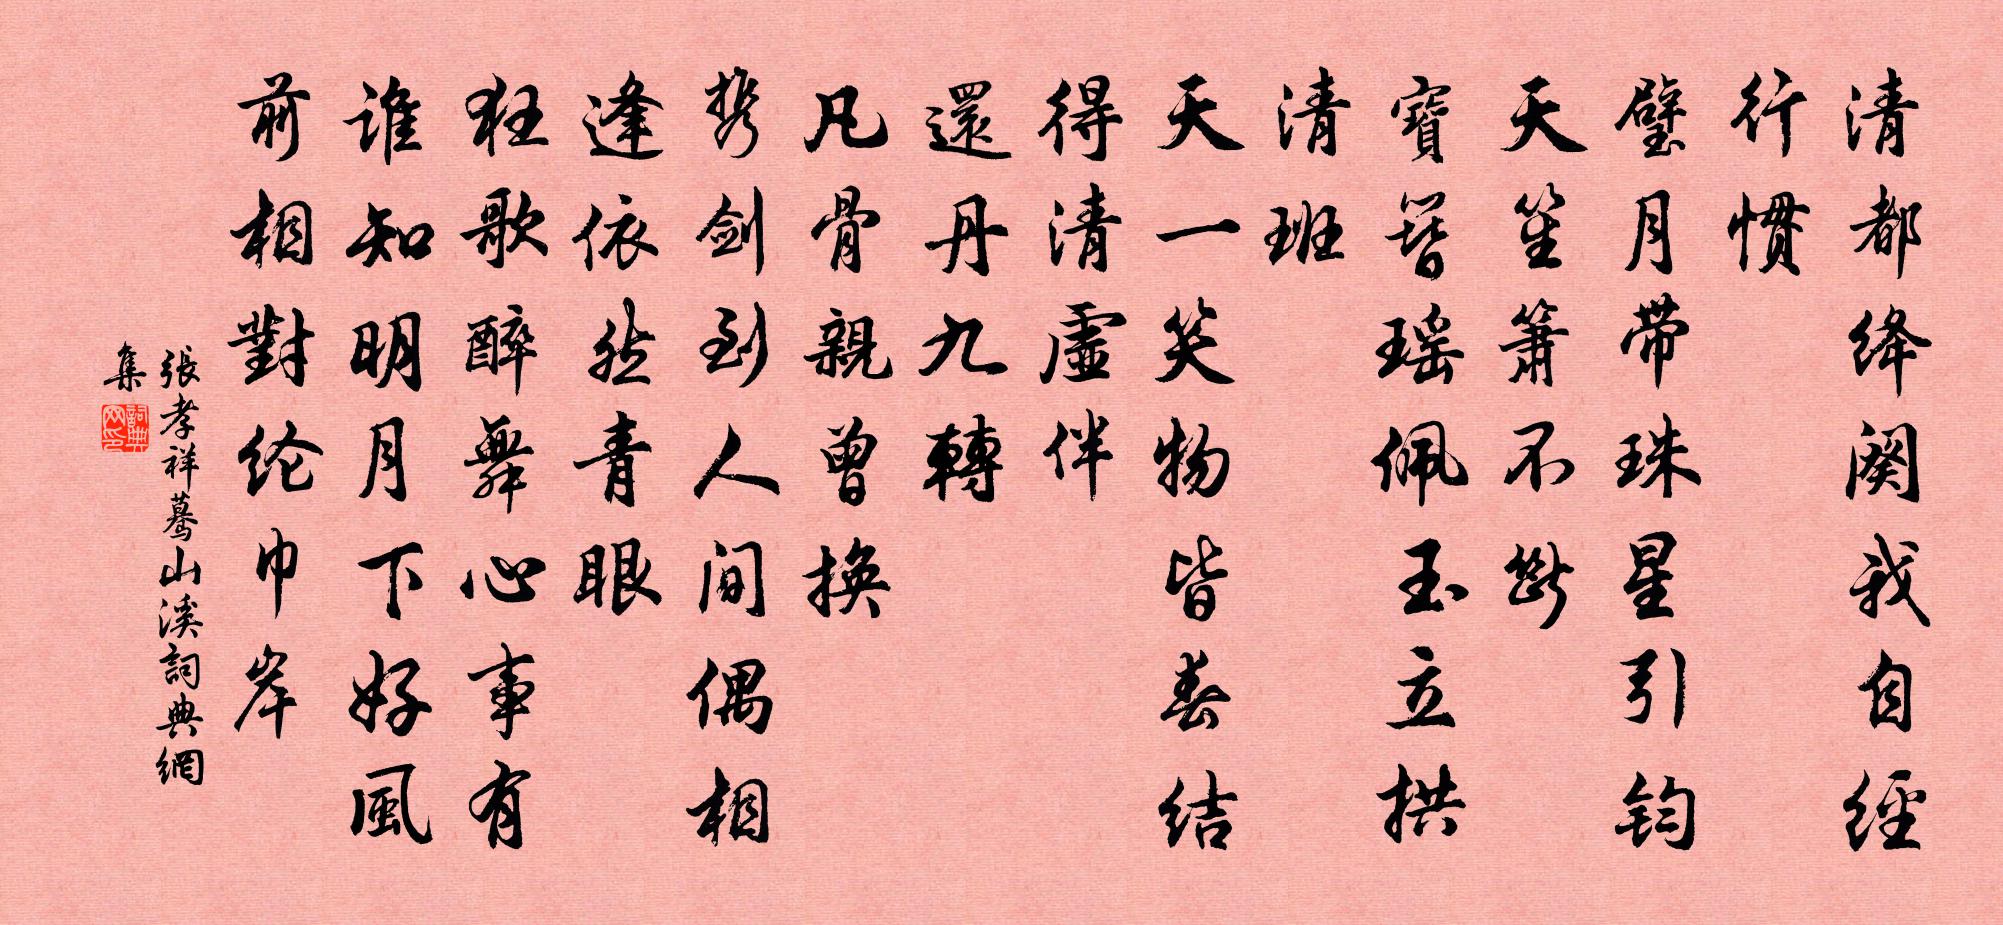 清都绛阙我自经
行惯
璧月带珠星引钧
天笙箫不断
寶簪瑶佩玉立拱
清班
天一笑物皆春结
得清虚伴
還丹九轉
凡骨親曾换
携剑到人间偶相
逢依然青眼
狂歌醉舞心事有
谁知明月下好風
前相對纶巾岸
張孝祥驀山溪詞典網
集
詞典网印